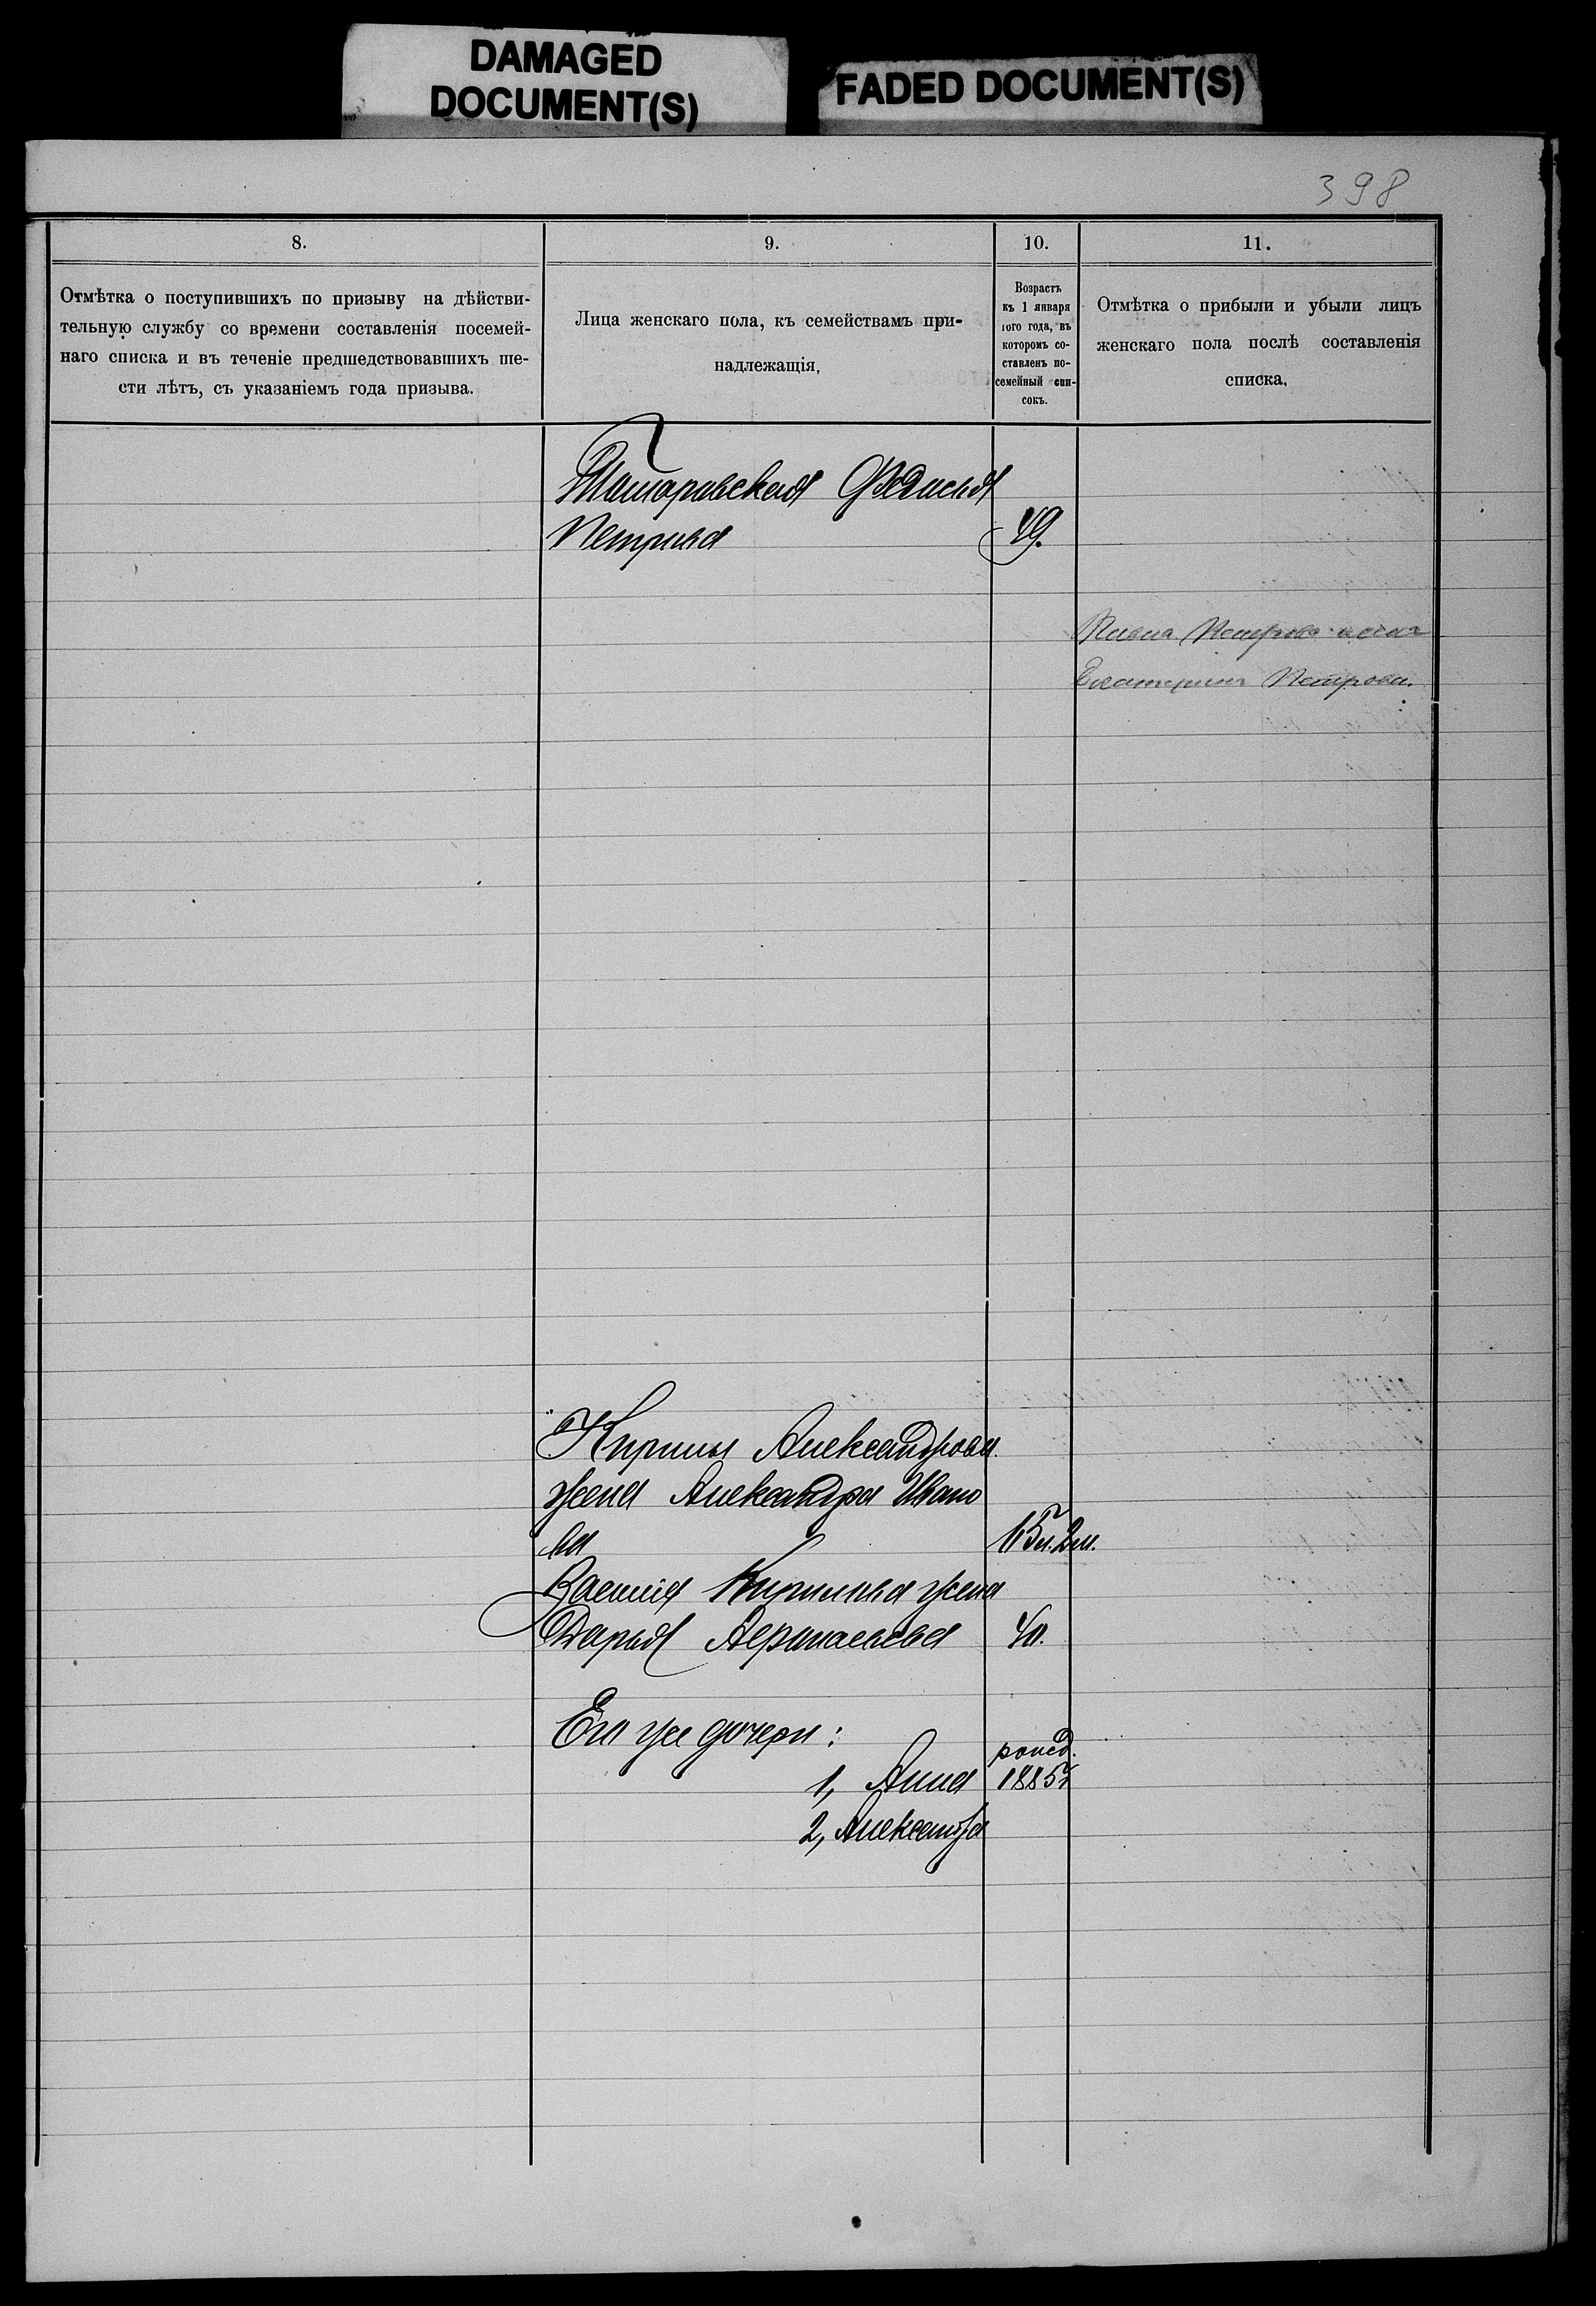 DAMAGED
DOCUMENT(S)
FADED DOCUMENT(S)
398
8.
9.
10.
11.
Отмѣтка о поступившихъ по призыву на дѣйстви-
тельную службу со времени составленія посемей-
наго списка и въ теченіе предшедствовавшихъ ше-
сти лѣтъ, съ указаніемъ года призыва.
Лица женскаго пола, къ семействамъ при-
надлежащія,
Возрастъ
къ 1 января
того года, въ
которомъ со-
ставленъ по-
семейный спи-
сокъ.
Отмѣтка о прибыли и убыли лицъ
женскаго пола послѣ составленія
списка,
Петрова
49.
Петрова
Екатерина Петрова.
Кирилы Александрова
жена Александра Ивано
ва
Василія Кирилова жена
Дарья
40.
Его же дочери:
1, Анна
1885 г
2, Александра